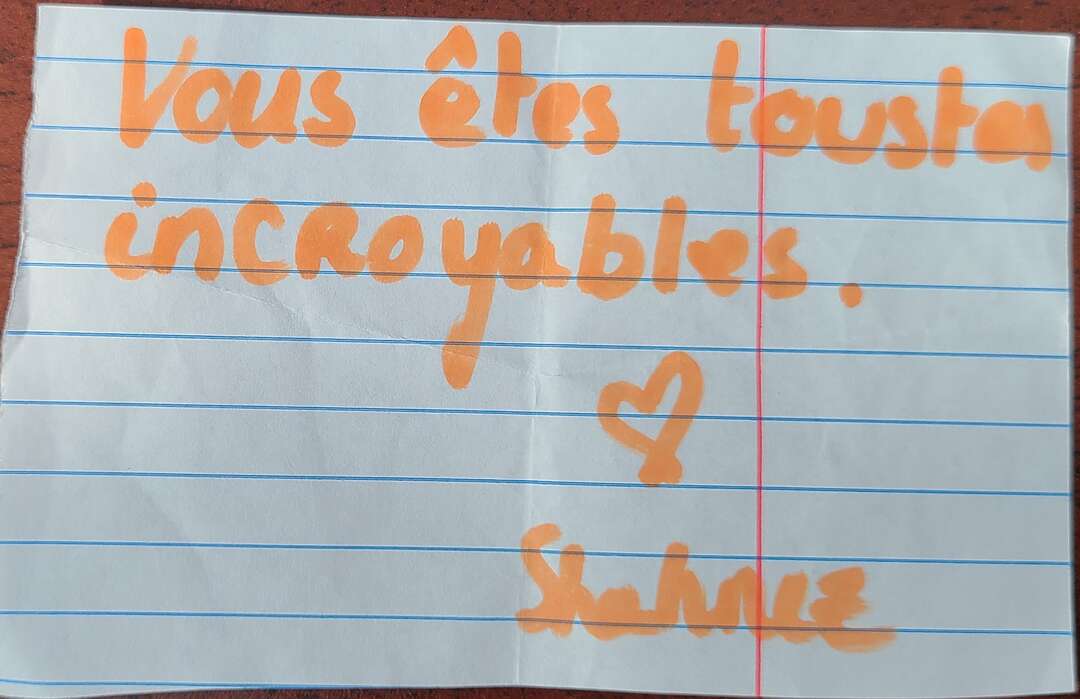 Vous êtes toustes
incroyables.